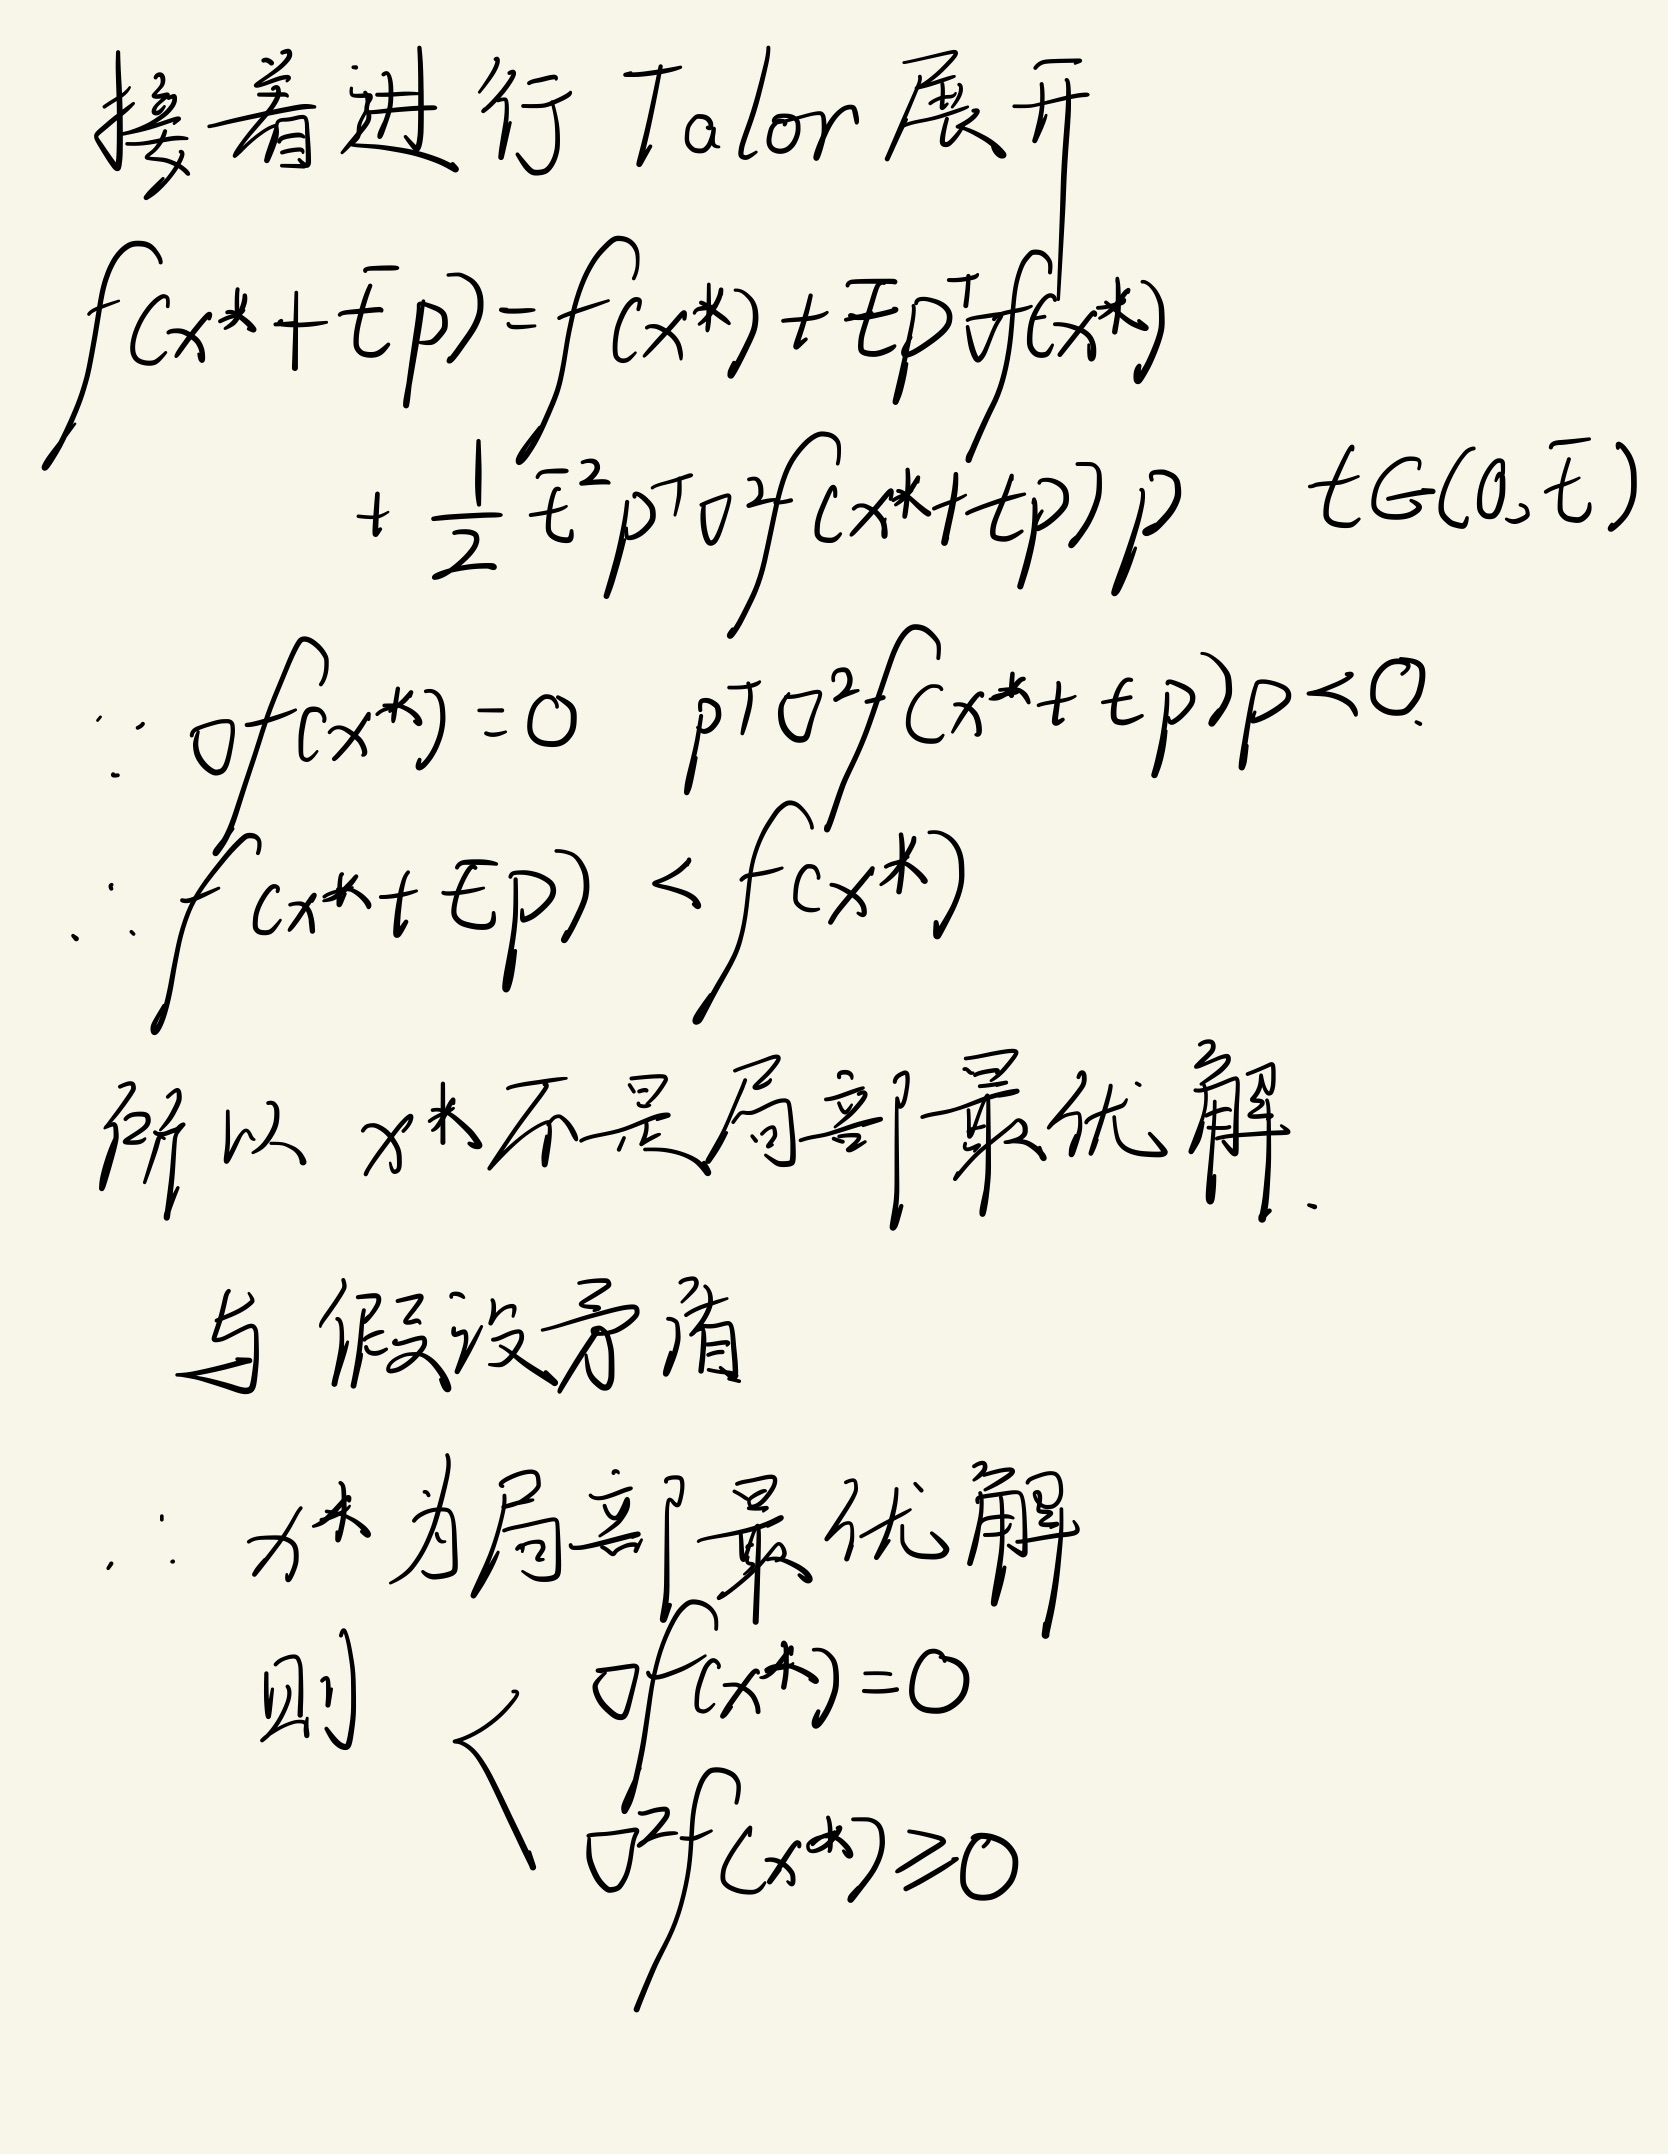 接着进行 Talor 展开
f(x*+t̄p)=f(x*)+t̄pᵀ∇f(x*)
+ 1/2 t̄²pᵀ∇²f(x*+tp)p t∈(0,t̄)
∵ ∇f(x*)=0 pᵀ∇²f(x*+tp)p<0.
∴ f(x*+t̄p)<f(x*)
所以 x*不是局部最优解.
与假设矛盾
∴ x*为局部最优解
则 { ∇f(x*)=0
∇²f(x*)≥0